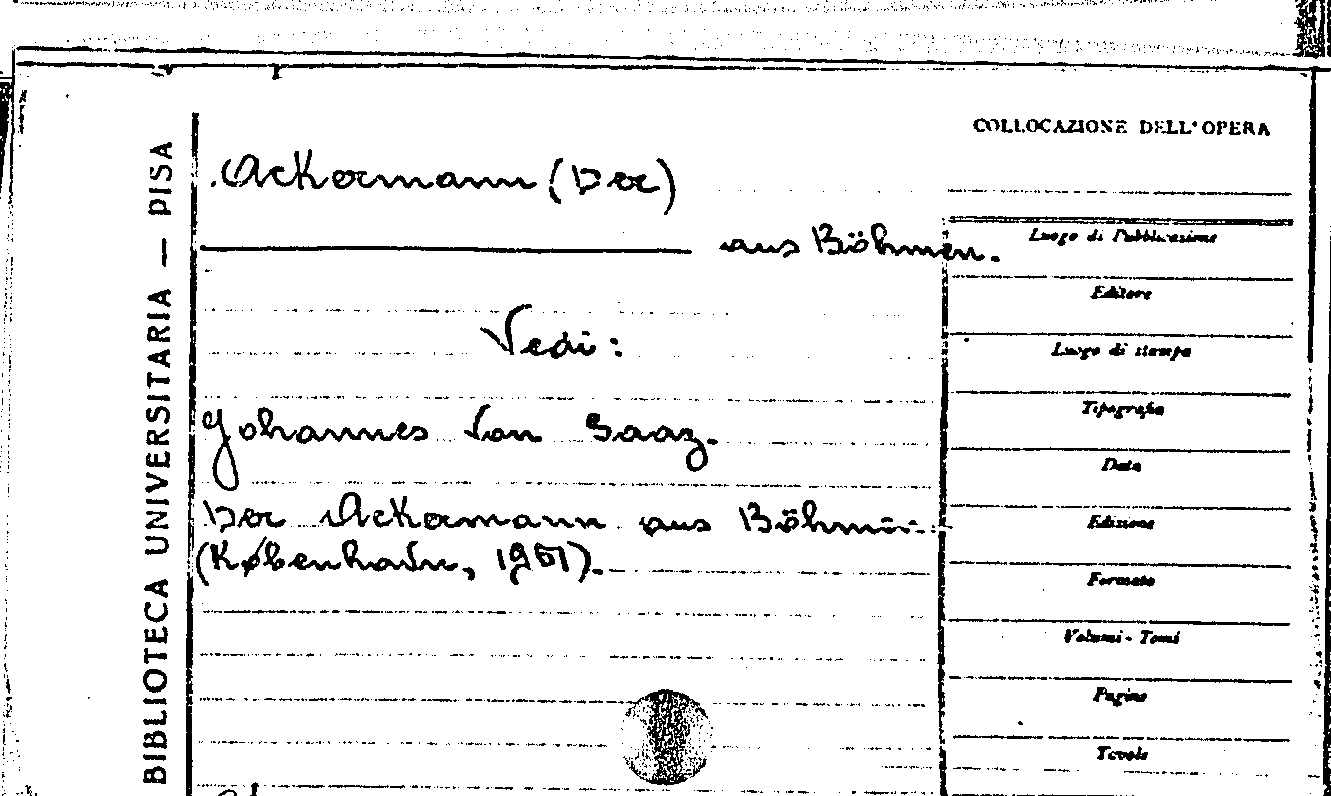 BIBLIOTECA UNIVERSITARIA — PISA
Ackermann (Der)
aus Böhmen.
Vedi:
Johannes von Saaz.
Der Ackermann aus Böhmen..
(København, 1951).
COLLOCAZIONE DELL'OPERA
Luogo di Pubblicazione
Editore
Luogo di stampa
Tipografia
Data
Edizione
Formato
Volumi - Tomi
Pagine
Tavole